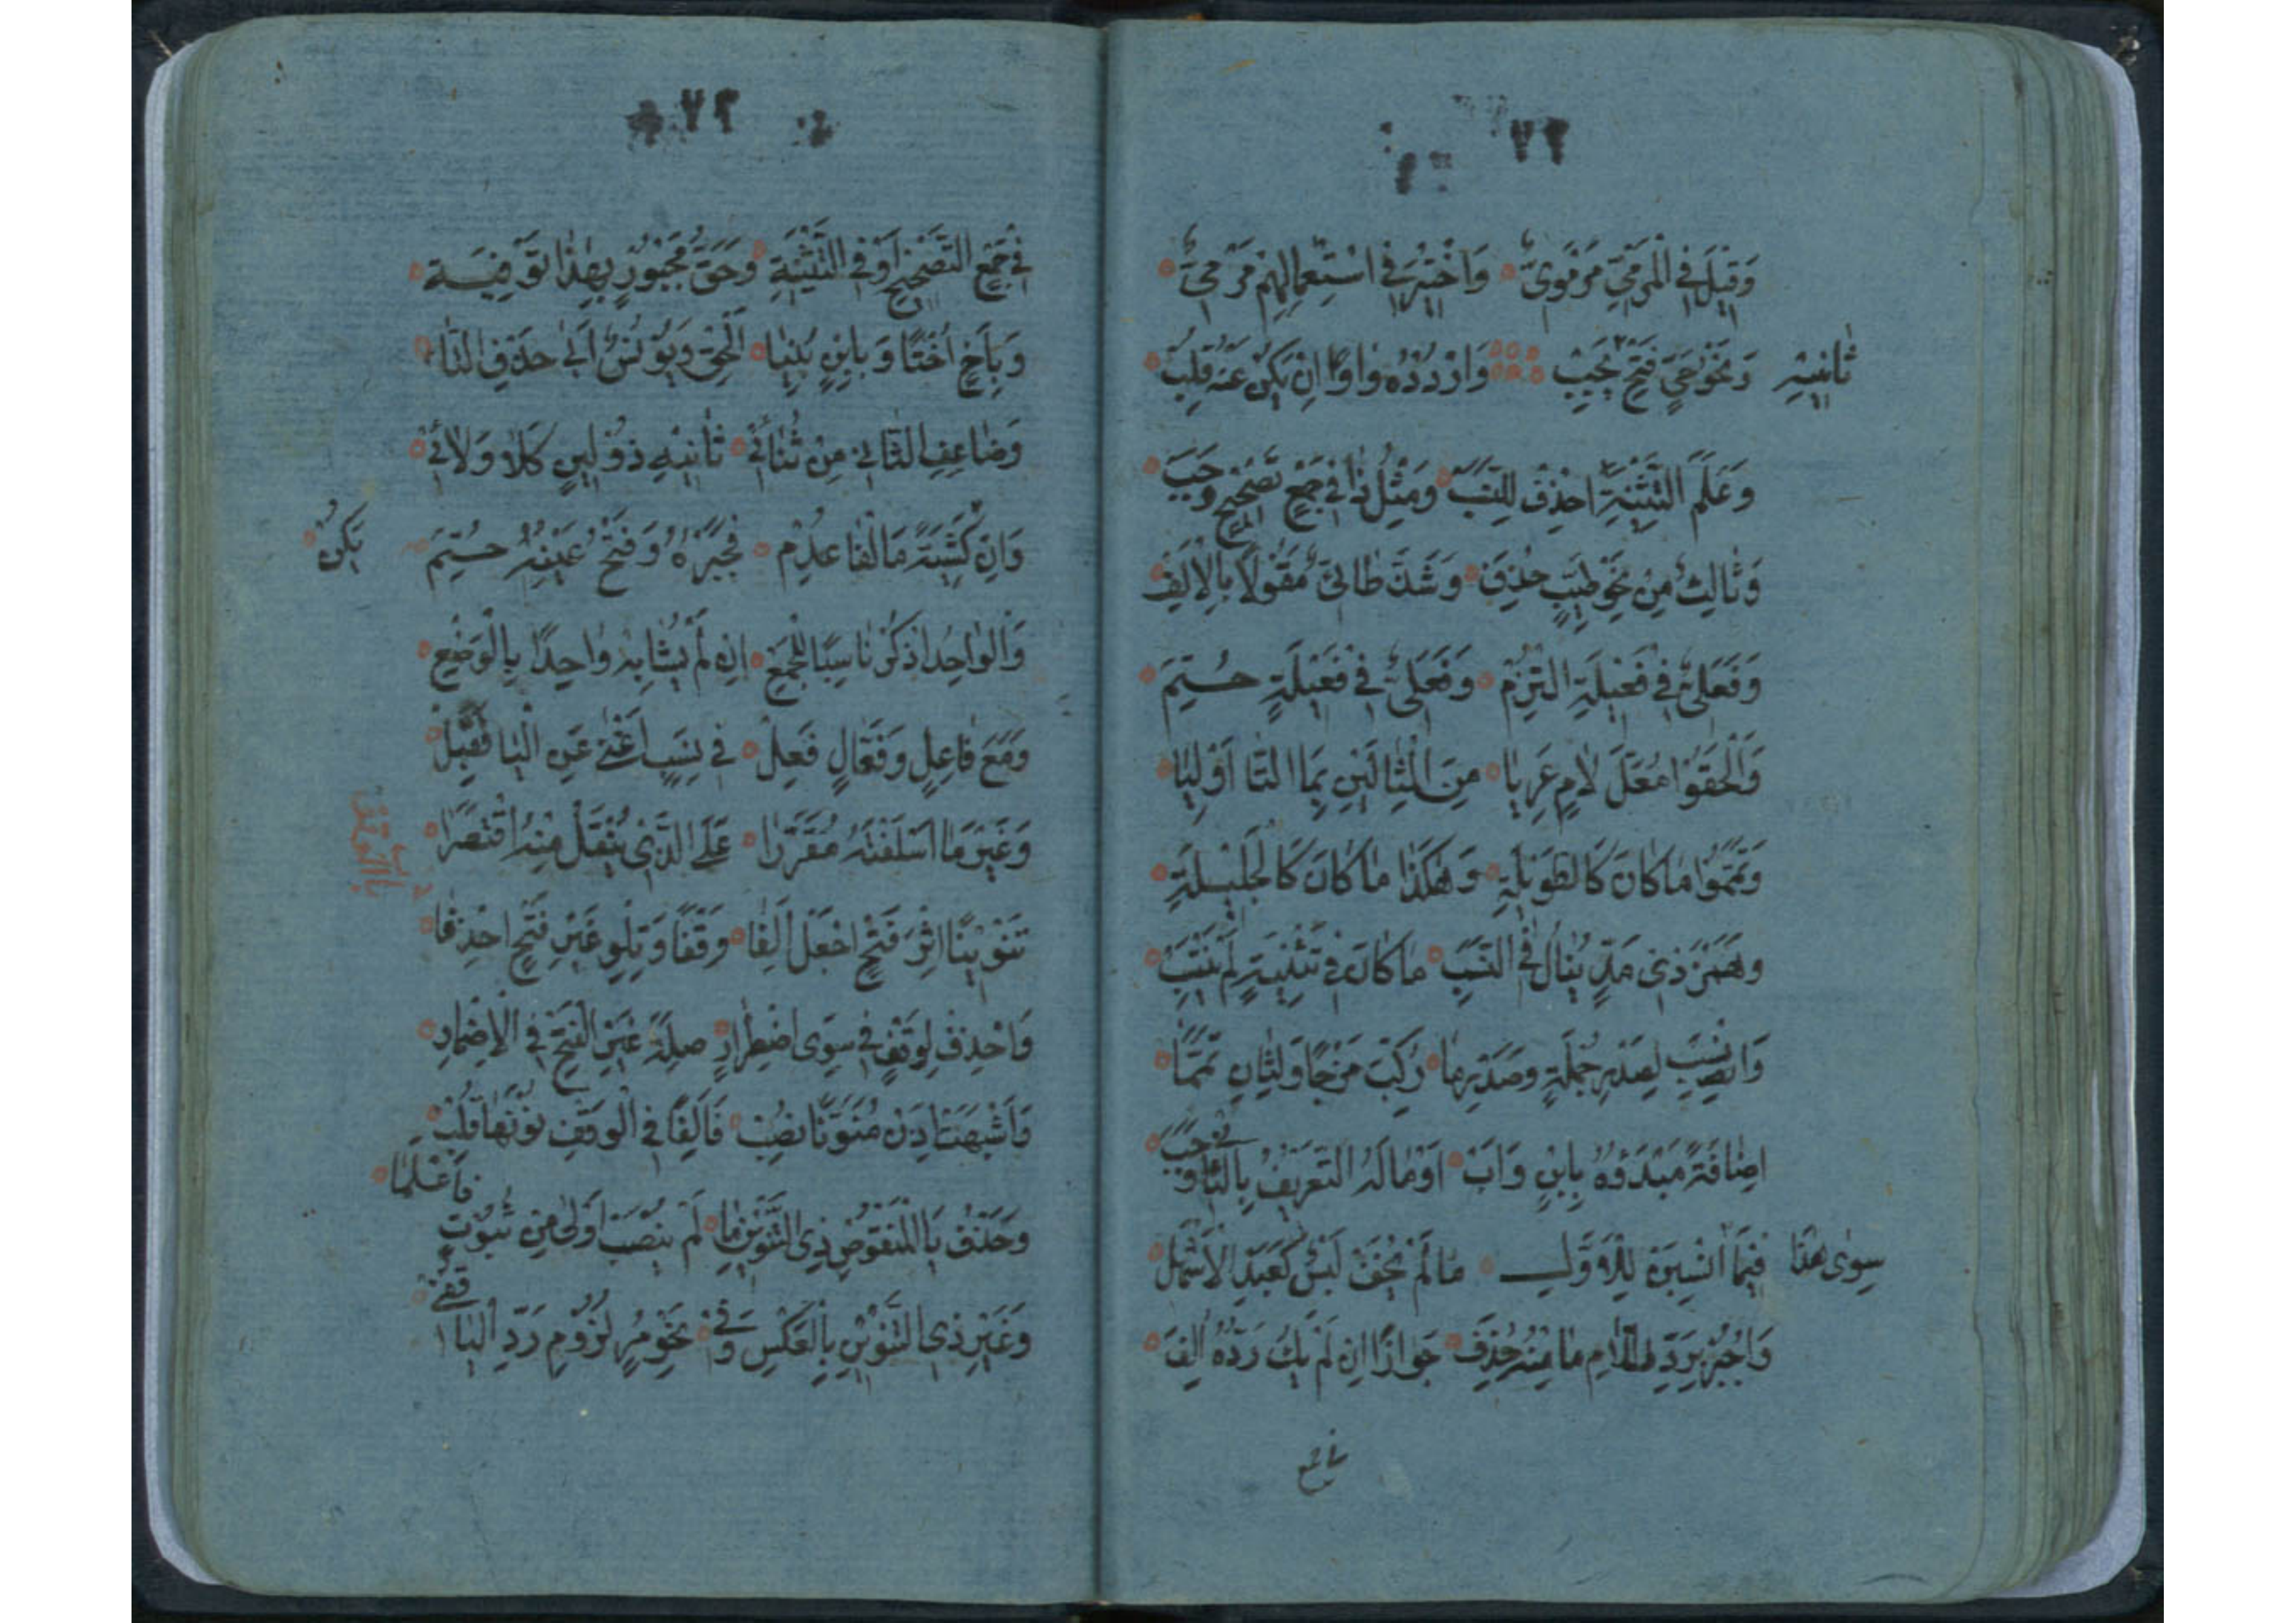 ٧٢
وَقِيْلَ فِي الْمَرْمِيِّ مَرْمَوِيٌّ وَاخْتِيْرَ فِي اسْتِعْمَالِهِمْ مَرْمِيٌّ
وَنَحْوُ حَيٍّ فَتْحُ يَجِبْ وَارْدُدْهُ وَاوًا اِنْ يَكُنْ عَنْهُ قُلِبْ
ثَانِيْهِ
وَعَلَمَ التَّثْنِيَةِ احْذِفْ لِلنَّسَبْ وَمِثْلُ ذَا فِي جَمْعِ تَصْحِيْحٍ وَجَبَ
وَثَالِثٌ مِنْ نَحْوِ طَيِّبٍ حُذِفَ وَشَذَّ طَائِيٌّ مَقُوْلًا بِالْاَلِفْ
وَفَعَلِيٌّ فِي فَعِيْلَةِ الْتُزِمْ وَفُعَلِيٌّ فِي فُعَيْلَةٍ حُتِمَ
وَاَلْحَقُوْا مُعَلَّ لَامٍ عَرِيَا مِنَ الْمِثَالَيْنِ بِمَا التَّا اُوْلِيَا
وَتَمَّمُوْا مَا كَانَ كَالطَّوِيْلَةِ وَهٰكَذَا مَا كَانَ كَالْجَلِيْلَةِ
وَهَمْزُ ذِي مَدٍّ يُنَالُ فِي النَّسَبِ مَا كَانَ فِي تَثْنِيَةٍ لَهُ يُنْتَسَبْ
وَانْسُبْ لِصَدْرِ جُمْلَةٍ وَصَدْرِ مَا رُكِّبَ مَزْجًا وَلِثَانٍ تَمَّمَا
اِضَافَةً مَبْدُوْءَةً بِابْنٍ وَاَبْ اَوْ مَا لَهُ التَّعْرِيْفُ بِالثَّانِي وَجَبْ
فِيْمَا انْسُبَنْ لِلْاَوَّلِ مَا لَمْ يُخَفْ لَبْسٌ كَعَبْدِ الْاَشْهَلِ
سِوٰى هٰذَا
وَاجْبُرْ بِرَدِّ اللَّامِ مَا مِنْهُ حُذِفَ جَوَازًا اِنْ لَمْ يَكُ رَدُّهُ اُلِفَ
في جمع
٧٢
فِي جَمْعَيِ التَّصْحِيْحِ اَوْ فِي التَّثْنِيَةِ وَحَقُّ مَجْبُوْرٍ بِهٰذَا تَوْفِيَة
وَبِاَخٍ اُخْتًا وَبِابْنٍ بِنْتًا اَلْحِقْ وَيُوْنُسُ اَبٰى حَذْفَ التَّا
وَضَاعِفِ الثَّانِيَ مِنْ ثُنَائِيْ ثَانِيْهِ ذُوْ لِيْنٍ كَلَا وَلَائِيْ
وَاِنْ كَشِيَةٍ مَا الْفَا عَدِمْ فَجَبْرُهُ وَفَتْحُ عَيْنِهِ حُتِمَ
يَكُنْ
وَالْوَاحِدَ اذْكُرْ نَاسِبًا لِلْجَمْعِ اِنْ لَمْ يُشَابِهْ وَاحِدًا بِالْوَضْعِ
وَمَعَ فَاعِلٍ وَفَعَّالٍ فَعِلْ فِي نَسَبٍ اَغْنٰى عَنِ الْيَا فَقُبِلْ
وَغَيْرَ مَا اَسْلَفْتُهُ مُقَرَّرَا عَلَى الَّذِي يُنْقَلُ مِنْهُ اقْتُصِرَا
تَنْوِيْنًا اِثْرَ فَتْحٍ اجْعَلْ اَلِفَا وَقْفًا وَتِلْوَ غَيْرِ فَتْحٍ احْذِفَا
باب الوقف
وَاحْذِفْ لِوَقْفٍ فِي سِوَى اضْطِرَارِ صِلَةَ غَيْرِ الْفَتْحِ فِي الْاِضْمَارِ
وَاَشْبَهَتْ اِذَنْ مُنَوَّنًا نُصِبْ فَاَلِفًا فِي الْوَقْفِ نُوْنُهَا قُلِبْ
وَحَذْفُ يَا الْمَنْقُوْصِ ذِي التَّنْوِيْنِ مَا لَمْ يُنْصَبْ اَوْلٰى مِنْ ثُبُوْتٍ فَاعْلَمَا
وَغَيْرُ ذِي التَّنْوِيْنِ بِالْعَكْسِ وَفِي نَحْوِ مُرٍ لُزُوْمُ رَدِّ الْيَا قُفِيْ